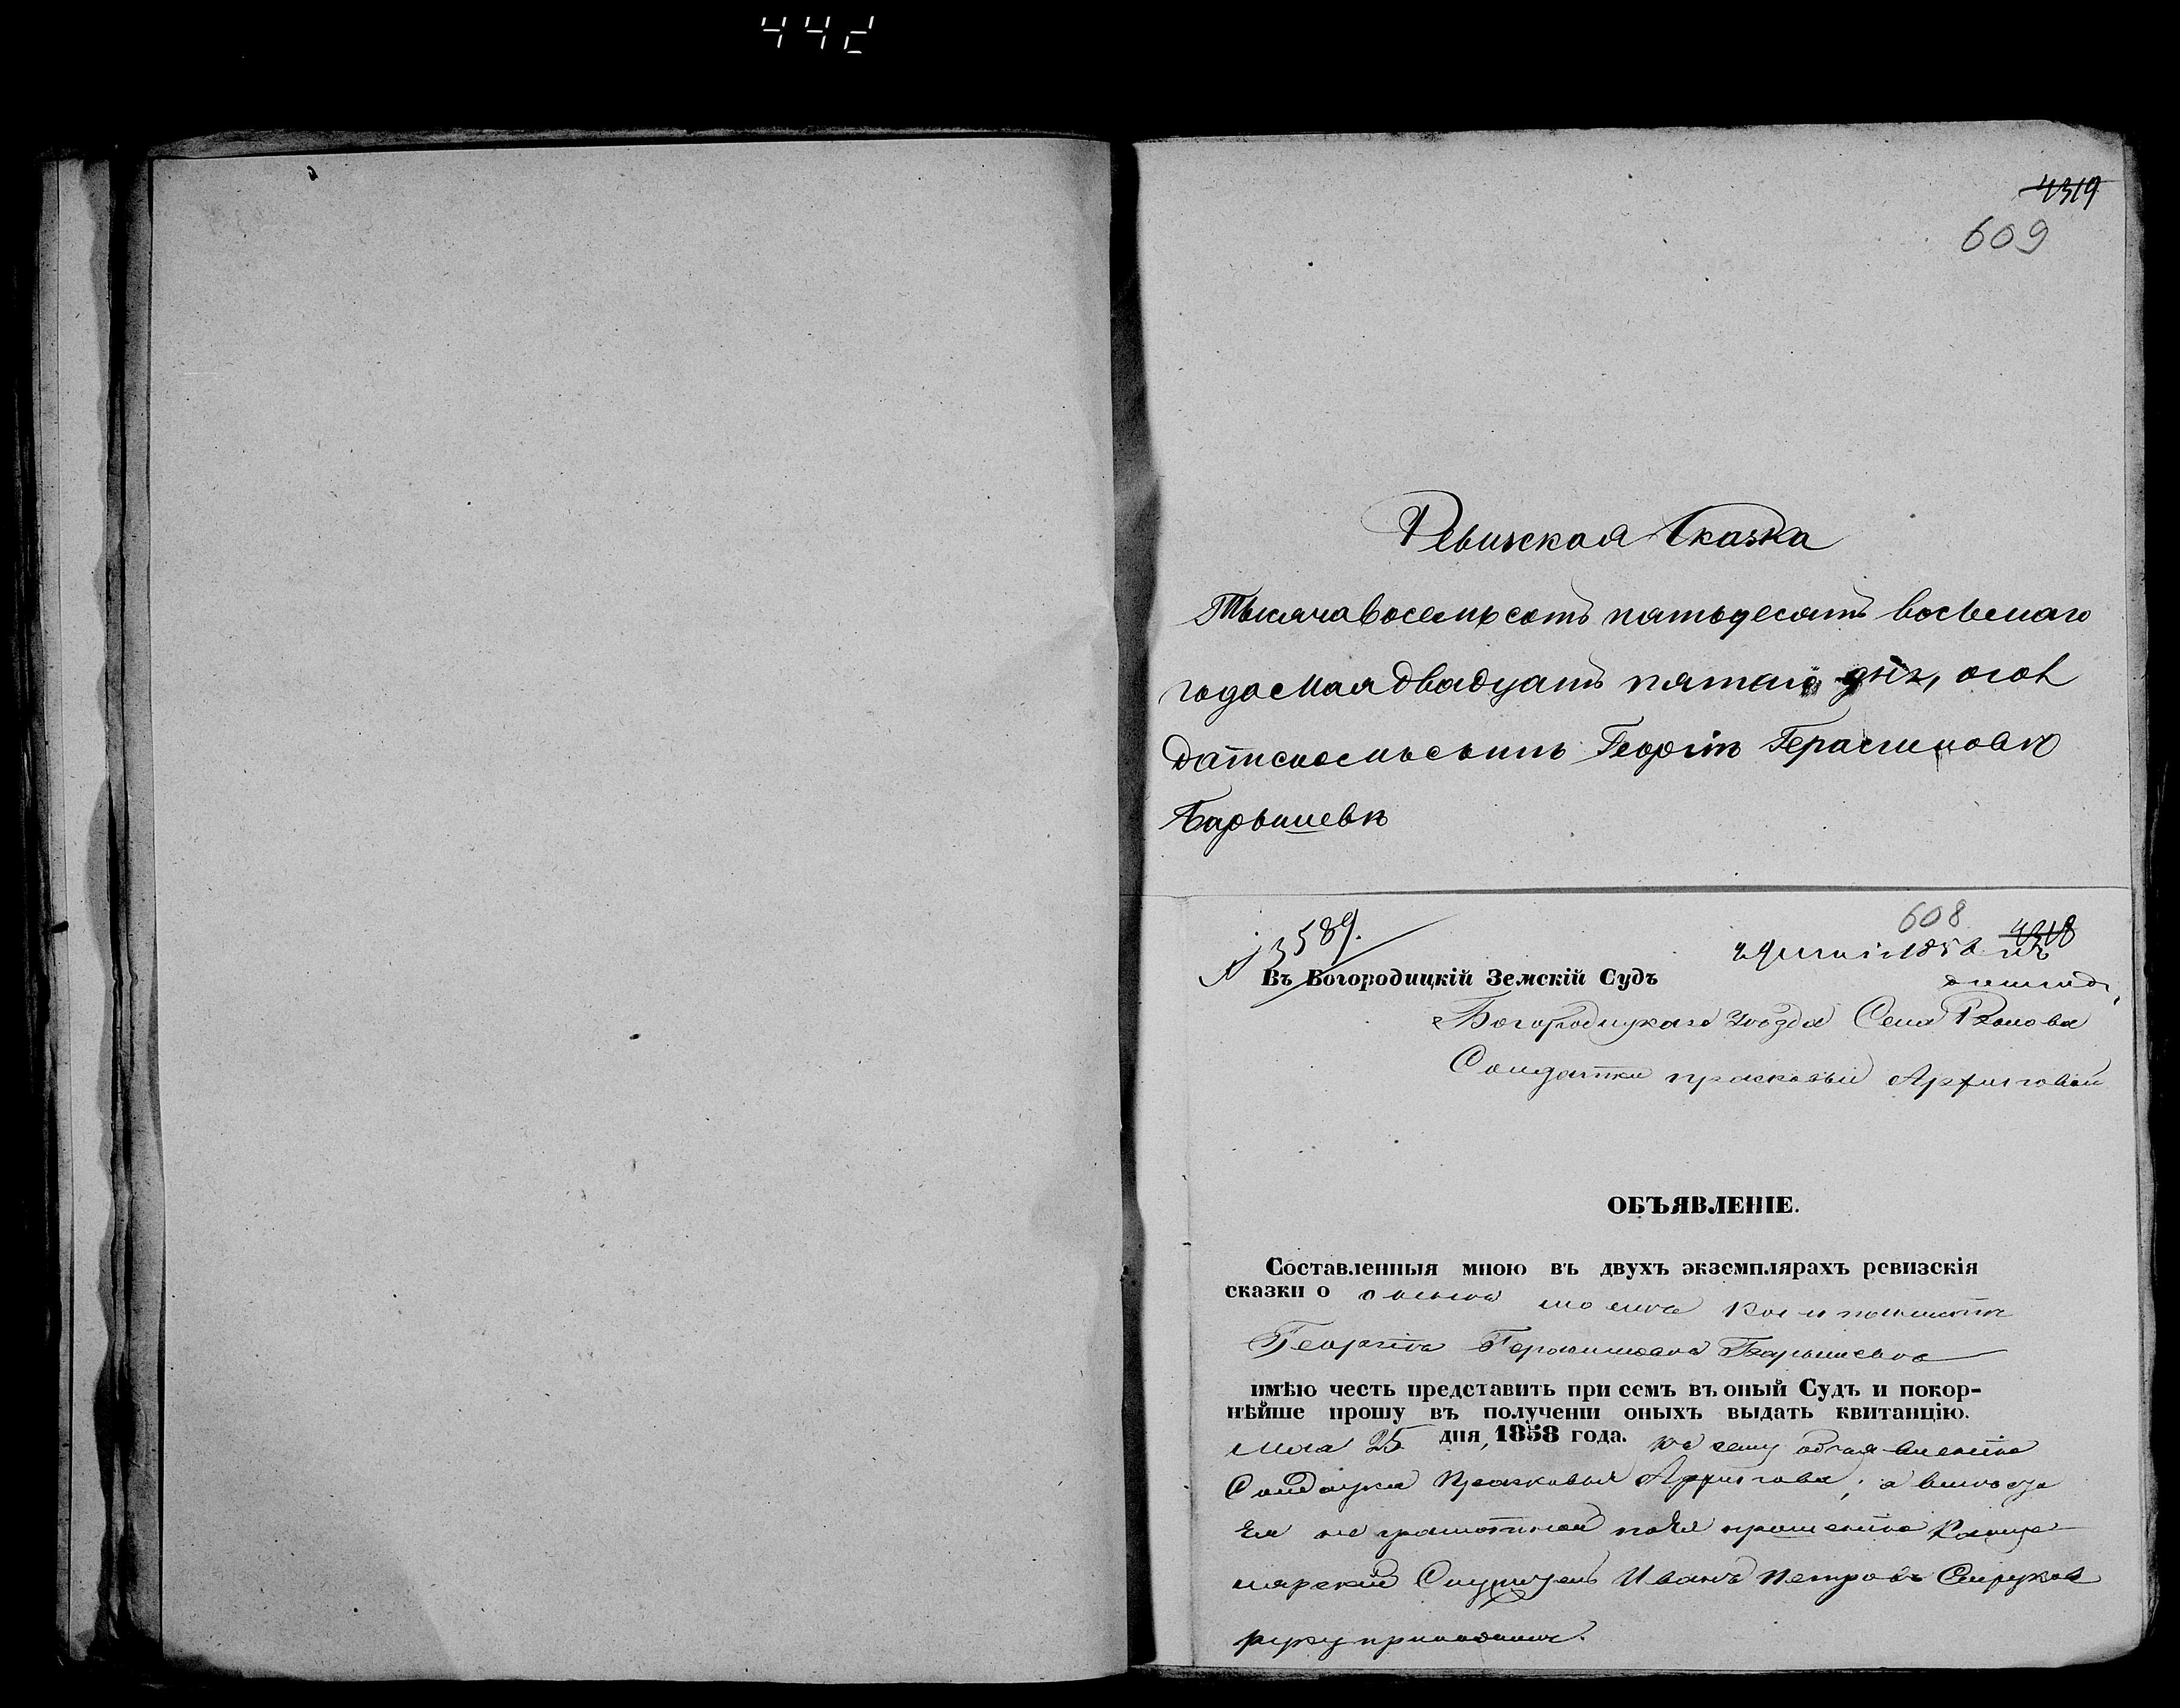 442
4319
609
Ревизская Сказка
Тысяча восемьсотъ пятьдесятъ восьмаго
года Мая двадцать пятаго дня, о сол
датскомъ сынѣ Георгiѣ Герасимовѣ
Барышевѣ
№ 3589.
608
4318
Въ Богородицкій Земскій Судъ
Богородицкаго Уѣзда Села
Солдатки Прасковьи
ОБЪЯВЛЕНІЕ.
Составленныя мною въ двухъ экземплярахъ ревизскія
сказки о сынѣ моемъ
Георгіѣ Герасимовѣ Барышевѣ
имѣю честь представить при семъ въ оный Судъ и покор-
нѣйше прошу въ полученіи оныхъ выдать квитанцію.
Мая 25 дня, 1858 года. Къ сему объявленію
Солдатка Прасковья а вмѣсто
Ея не грамотной по Ея прошенію Канце
лярскій Служитель Иванъ Петровъ
руку приложилъ.